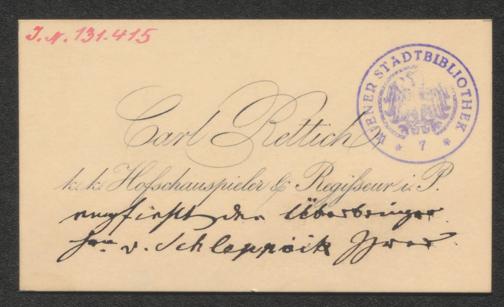 J. N. 131.415
WIENER STADTBIBLIOTHEK
* 7 *
Carl Rettich
k. k. Hofschauspieler & Regisseur i. P.
empfiehlt den Überbringer
v.